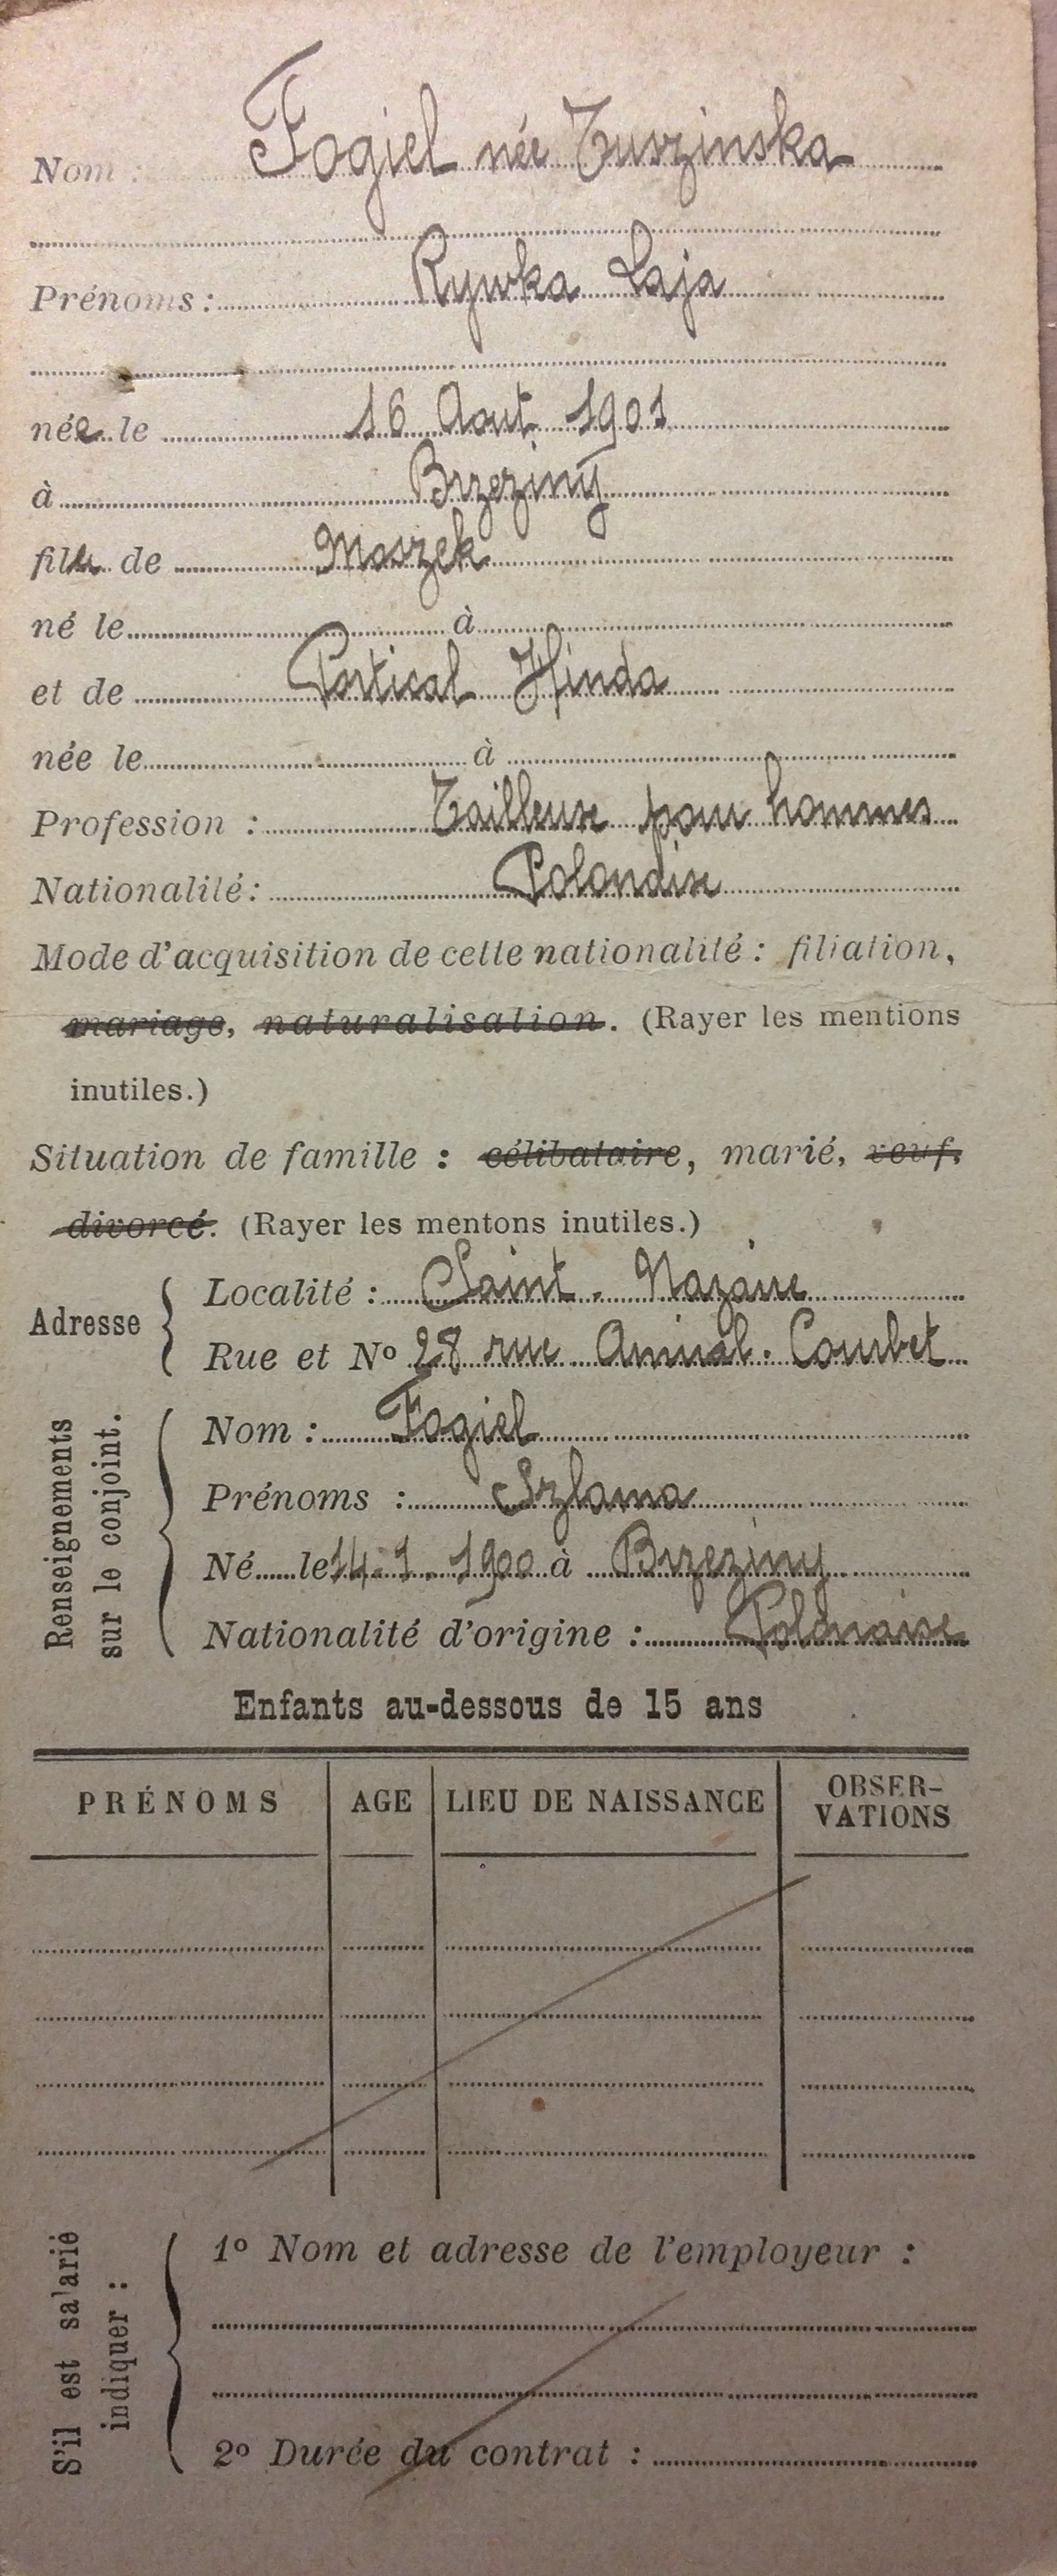 Nom : Fogiel née Tuszinska
Prénoms : Rywka Laja
née le 16 Aout 1901
à Brzeziny
fille de Moszek
né le à
et de Portical Hinda
née le à
Profession : Tailleuse pour hommes
Nationalité : Polonaise
Mode d'acquisition de cette nationalité : filiation,
mariage, naturalisation. (Rayer les mentions
inutiles.)
Situation de famille : célibataire, marié, veuf,
divorcé. (Rayer les mentons inutiles.)
Adresse
Localité : Saint-Nazaire
Rue et Nº 28 rue Amiral-Courbet
Renseignements
sur le conjoint.
Nom : Fogiel
Prénoms : Szlama
Né le 14.1.1900 à Brzeziny
Nationalité d'origine : Polonaise
Enfants au-dessous de 15 ans
PRÉNOMS AGE LIEU DE NAISSANCE OBSER-
VATIONS
S'il est salarié
indiquer :
1º Nom et adresse de l'employeur :
2º Durée du contrat :